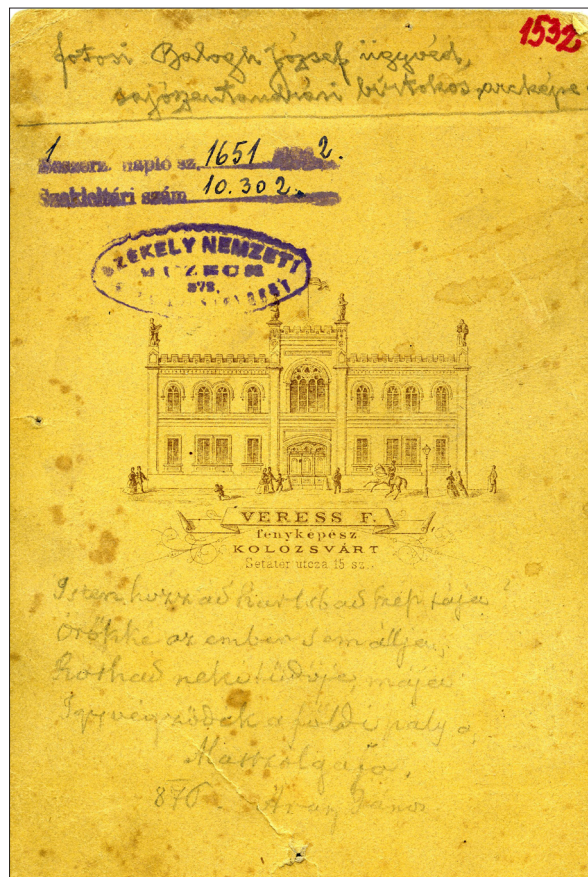 1532
fotosi Balogh József ügyvéd,
sajószentandrási birtokos arcképe
1
Beszerz. napló sz. 1651 2.
Szakleltári szám 10.302.
SZÉKELY NEMZETI
MUZEUM
879.
VERESS F.
fényképész
KOLOZSVÁRT
Sétatér utcza 15 sz.
Isten hozzád Karlsbad szép tája
Örökké az ember sem állja,
Rothad neki tüdője, mája
Igy végződék a földi pálya
876 Arany János